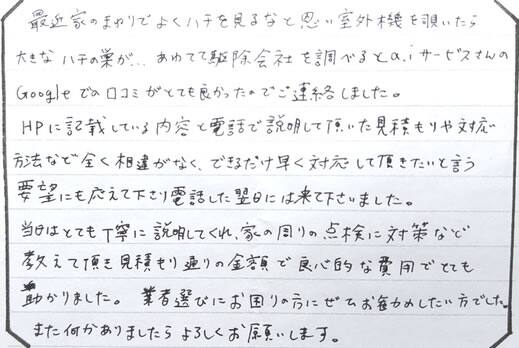 最近家のまわりでよくハチを見るなと思い室外機を覗いたら
大きなハチの巣が… あわてて駆除会社を調べるとa.iサービスさんの
Googleでの口コミがとても良かったのでご連絡しました。
HPに記載している内容と電話で説明して頂いた見積もりや対応
方法など全く相違がなく、できるだけ早く対応して頂きたいと言う
要望にも応えて下さり電話した翌日には来て下さいました。
当日はとても丁寧に説明してくれ、家の周りの点検に対策など
教えて頂き見積もり通りの金額で良心的な費用でとても
助かりました。 業者選びにお困りの方にぜひお勧めしたい方でした。
また何かありましたらよろしくお願いします。